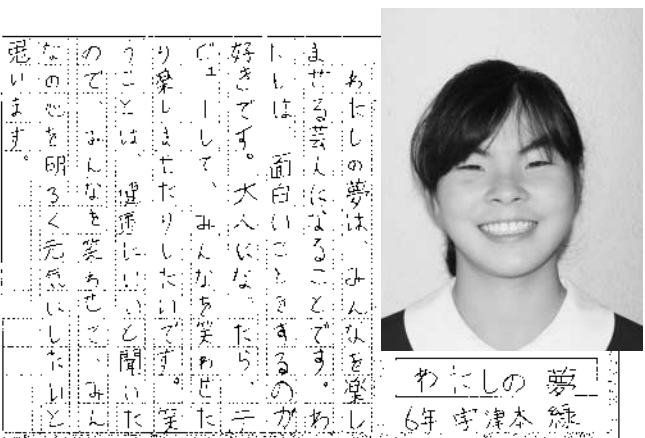 わたしの夢は、みんなを楽し
ませる芸人になることです。わ
たしは、面白いことをするのが
好きです。大人になったら、デ
ビューして、みんなを笑わせた
り楽しませたりしたいです。笑
うことは、健康にいいと聞いた
ので、みんなを笑わせて、みん
なの心を明るく元気にしたいと
思います。
わたしの夢
6年 宇津本 緑